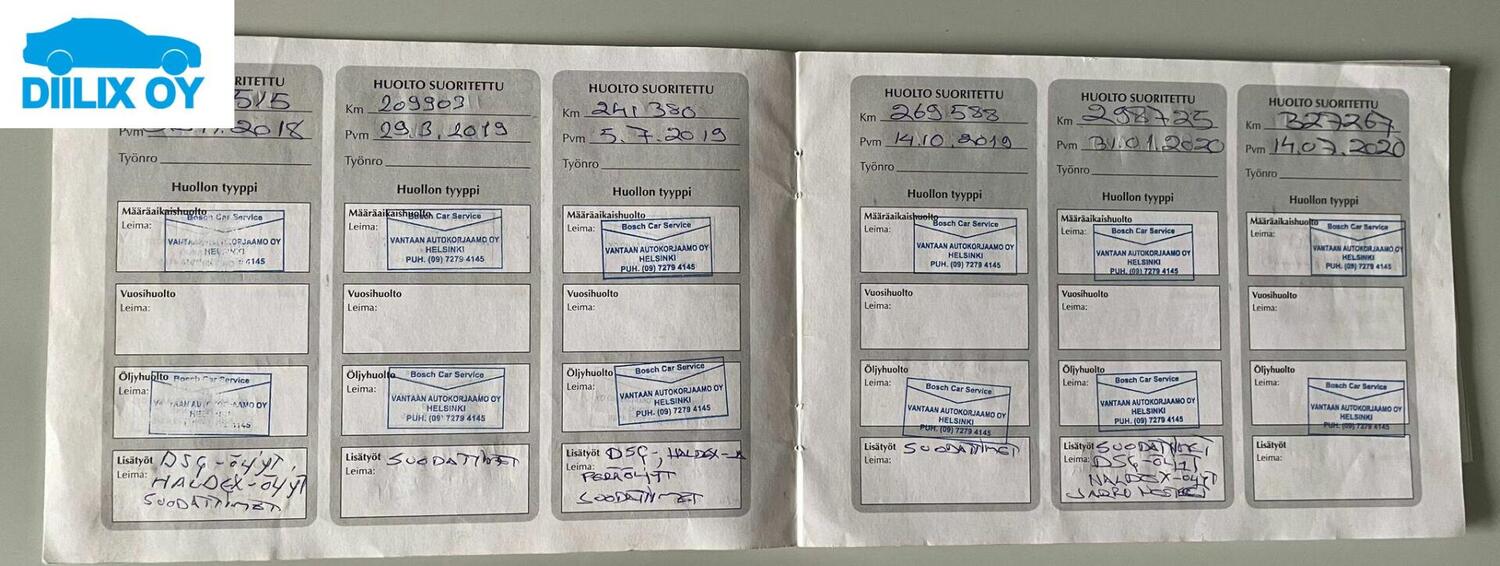 DIILIX OY
RITETTU
515
Pvm 2018
Työnro
Huollon tyyppi
Määräaikaishuolto
Leima:
Bosch Car Service
KORJAAMO OY
4145
Vuosihuolto
Leima:
Öljyhuolto
Leima:
Bosch Car Service
AMO OY
4145
Lisätyöt DSG-ÖLJYT,
Leima: HALDEX-ÖLJYT
SUODATTIMET
HUOLTO SUORITETTU
Km 209903
Pvm 29.3.2019
Työnro
Huollon tyyppi
Määräaikaishuolto
Leima:
Bosch Car Service
VANTAAN AUTOKORJAAMO OY
HELSINKI
PUH. (09) 7279 4145
Vuosihuolto
Leima:
Öljyhuolto
Leima:
Bosch Car Service
VANTAAN AUTOKORJAAMO OY
HELSINKI
PUH. (09) 7279 4145
Lisätyöt
Leima: SUODATTIMET
HUOLTO SUORITETTU
Km 241 380
Pvm 5.7.2019
Työnro
Huollon tyyppi
Määräaikaishuolto
Leima:
Bosch Car Service
VANTAAN AUTOKORJAAMO OY
HELSINKI
PUH. (09) 7279 4145
Vuosihuolto
Leima:
Öljyhuolto
Leima:
Bosch Car Service
VANTAAN AUTOKORJAAMO OY
HELSINKI
PUH. (09) 7279 4145
Lisätyöt DSG-, HALDEX-JA
Leima:
PERÄÖLJYT
SUODATTIMET
HUOLTO SUORITETTU
Km 269 588
Pvm 14.10.2019
Työnro
Huollon tyyppi
Määräaikaishuolto
Leima:
Bosch Car Service
VANTAAN AUTOKORJAAMO OY
HELSINKI
PUH. (09) 7279 4145
Vuosihuolto
Leima:
Öljyhuolto
Leima:
Bosch Car Service
VANTAAN AUTOKORJAAMO OY
HELSINKI
PUH. (09) 7279 4145
Lisätyöt SUODATTIMET
Leima:
HUOLTO SUORITETTU
Km 298725
Pvm 31.01.2020
Työnro
Huollon tyyppi
Määräaikaishuolto
Leima:
Bosch Car Service
VANTAAN AUTOKORJAAMO OY
HELSINKI
PUH. (09) 7279 4145
Vuosihuolto
Leima:
Öljyhuolto
Leima:
Bosch Car Service
VANTAAN AUTOKORJAAMO OY
HELSINKI
PUH. (09) 7279 4145
Lisätyöt SUODATTIMET
Leima: DSG-ÖLJYT
HALDEX-ÖLJYT
JARRUNESTEET
HUOLTO SUORITETTU
Km 327267
Pvm 14.07.2020
Työnro
Huollon tyyppi
Määräaikaishuolto
Leima:
Bosch Car Service
VANTAAN AUTOKORJAAMO OY
HELSINKI
PUH. (09) 7279 4145
Vuosihuolto
Leima:
Öljyhuolto
Leima:
Bosch Car Service
VANTAAN AUTOKORJAAMO OY
HELSINKI
PUH. (09) 7279 4145
Lisätyöt
Leima: